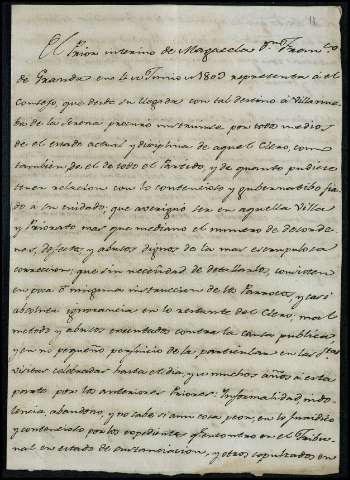 El Prior interino de Magacela Dn. Franco.
de Granda en 4 de Junio de 1809 representa á el
Consejo, que desde su llegada con tal destino á Villanue
ba de la Serena procuró instruirse por todos medios
de el estado actual y disciplina de aquel Clero, como
tambien de el de todo el Partido, y de quanto pudiere
tener relacion con lo contencioso y gubernatibo fia
do á su cuidado; que averiguó ser en aquella Villa
y Priorato mas que mediano el numero de desorde
nes, defectos, y abusos dignos de la mas escrupulosa
correccion, que sin necesidad de detallarlos, consisten
en poca ó ninguna instruccion de los Parrocos, y casi
absoluta ignorancia en lo restante del Clero, mal
metodo y abusos executados contra la causa publica,
y en no pequeño perjuicio de la particular en las Stas
visitas celebradas hasta el dia, y de muchos años á esta
parte por los anteriores Priores: Informalidad, indo
lencia, abandono, y no sabe si aun cosa peor, en lo juridico
y contencioso por los expedientes qe encontró en el Tribu
nal en estado de sustanciacion, y otros sepultados en